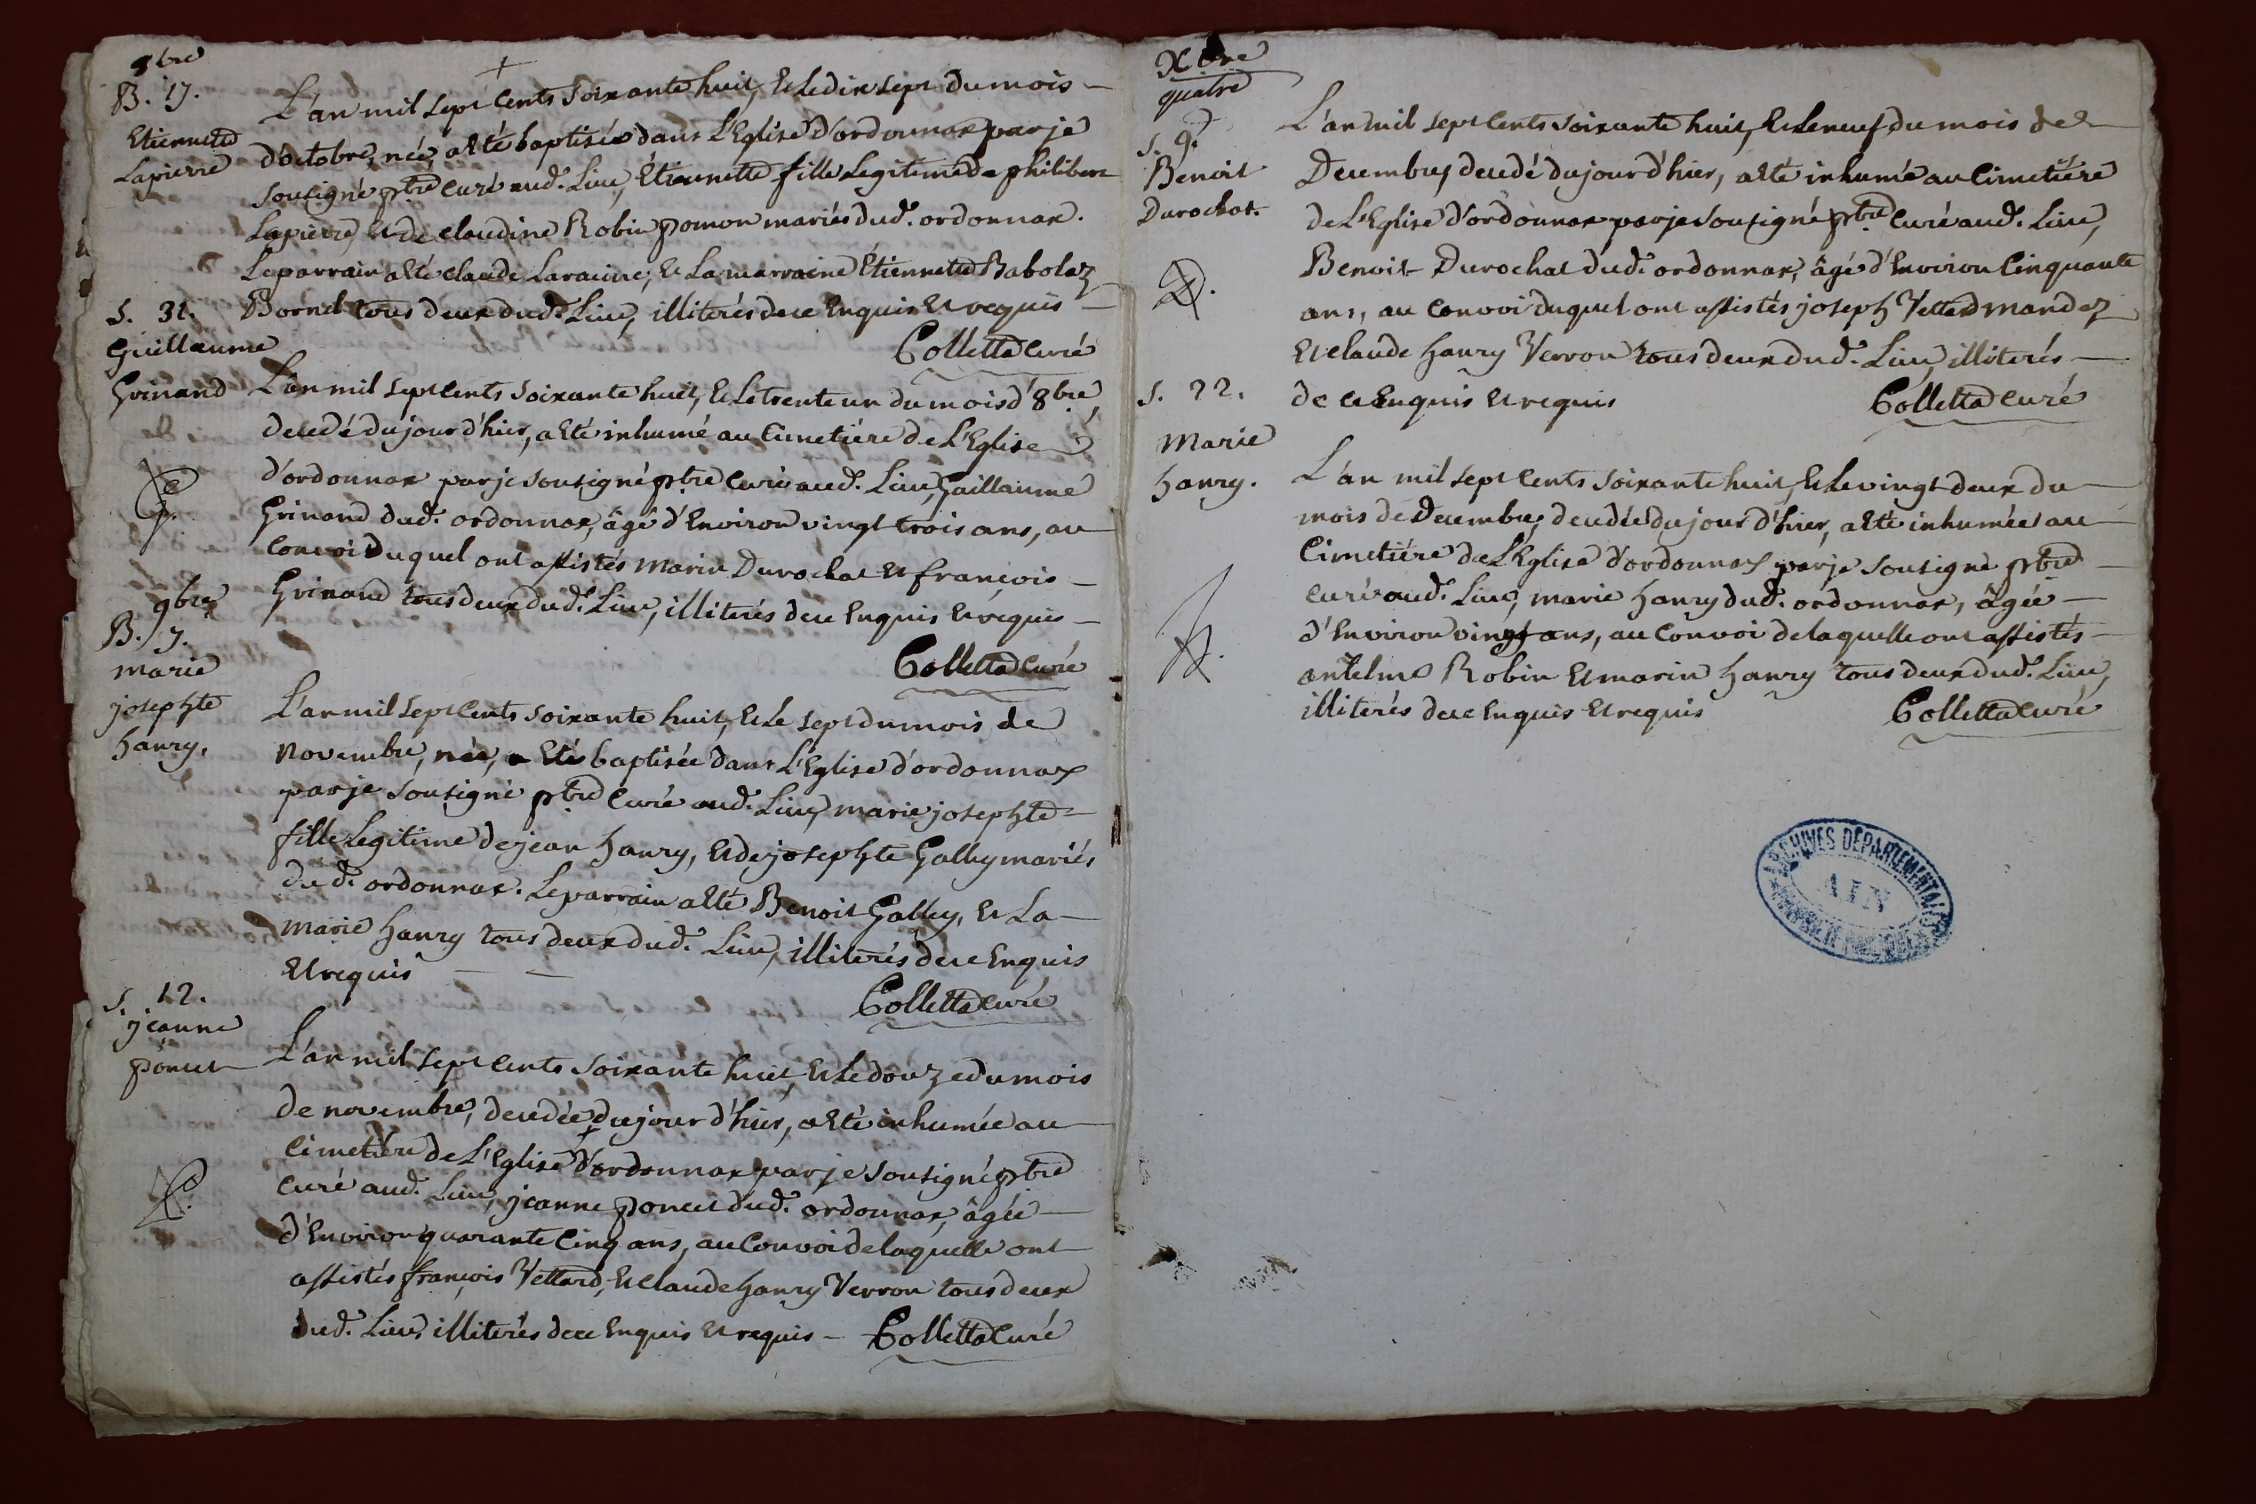 8bre
B. 17.
Etiennette
Lapierre
L'an mil sept Cents Soixante huit, Et Le dix sept du mois
d'octobre, née, a Eté baptisée dans L'Eglise d'ordonnax par je
soutigné ptre Curé aud. Lieu, Étiennette fille Legitime de philibert
Lapierre, Et de claudine Robin pomon mariés dud. ordonnax.
Le parrain a Eté claude Laravine, Et La marraine Étiennette Babolaz
Bornet tous deux dud. Lieu, illiterés de ce Enquis Et requis
Colletta Curé
S. 31.
Guillaume
Grinand
L'an mil sept Cents Soixante huit, Et Le trente un du mois d'8bre,
decedé du jour d'hier, a Eté inhumé au Cimetiére de L'Eglise
d'ordonnax par je soutigné ptre Curé aud. Lieu, Guillaume
Grinand dud. ordonnax, âgé d'Environ vingt trois ans, au
Convoi Duquel ont assistés marin Durochat Et françois
Grinand tous deux dud. Lieu, illiterés de ce Enquis Et requis
Colletta Curé
9bre
B. 7.
marie
josephte
hanry.
L'an mil sept Cents Soixante huit, Et Le sept du mois de
Novembre, née, a Eté baptisée dans L'Eglise d'ordonnax
par je soutigné ptre Curé aud. Lieu, marie josephte
fille Legitime de jean hanry, Et de josephte Galley mariés
dud. ordonnax. Le parrain a Eté Benoit Galley, Et La
marie hanry tous deux dud. Lieu, illiterés de ce Enquis
Et requis
Colletta Curé
S. 12.
jeanne
poncet
L'an mil sept Cents Soixante huit, Et Le douze du mois
de novembre, decedée du jour d'hier, a Eté inhumée au
Cimetiére de L'Eglise d'ordonnax par je soutigné ptre
Curé aud. Lieu, jeanne poncet dud. ordonnax, âgée
d'Environ quarante Cinq ans, au Convoi de laquelle ont
assistés françois Vettard, Et claude hanry Verron tous deux
dud. Lieu, illiterés de ce Enquis Et requis Colletta Curé
Xbre
quatre
S. 9.
Benoit
Durochat.
L'an mil sept Cents Soixante huit, Et Le neuf du mois de
Decembre, decedé du jour d'hier, a Eté inhumé au Cimetiére
de L'Eglise d'ordonnax par je soutigné ptre Curé aud. Lieu,
Benoit Durochat dud. ordonnax, âgé d'Environ Cinquante
ans, au Convoi duquel ont assistés joseph Vettard mandez
Et claude hanry Verron tous deux dud. Lieu, illiterés
de ce Enquis Et requis Colletta Curé
S. 22.
Marie
hanry.
L'an mil sept Cents Soixante huit, Et Le vingt deux du
mois de Decembre, decedée du jour d'hier, a Eté inhumée au
Cimetiére de L'Eglise d'ordonnax par je soutigné ptre
Curé aud. Lieu, marie hanry dud. ordonnax, âgée
d'Environ vingt ans, au Convoi de laquelle ont assistés
antelme Robin Et marin hanry tous deux dud. Lieu,
illiterés de ce Enquis Et requis Colletta Curé
ARCHIVES DÉPARTEMENTALES
AIN